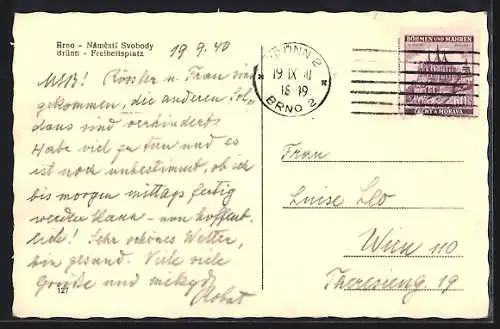 Brno - Náměstí Svobody
Brünn - Freiheitsplatz
19 9. 40
BRÜNN 2
19 IX
18-19
BRNO 2
BÖHMEN UND MÄHREN
ČECHY A MORAVA
Rössler u. Frau sind
gekommen, die anderen Sol„
daus sind verhindert.
Habe viel zu tun und es
ist noch unbestimmt, ob ich
bis morgen mittags fertig
werden kann - nun hoffent„
lich! Sehr schönes Wetter,
bin gesund. Viele viele
Grüße und
Robert
127
Frau
Luise Leo
Wien 110
Theresieng. 19